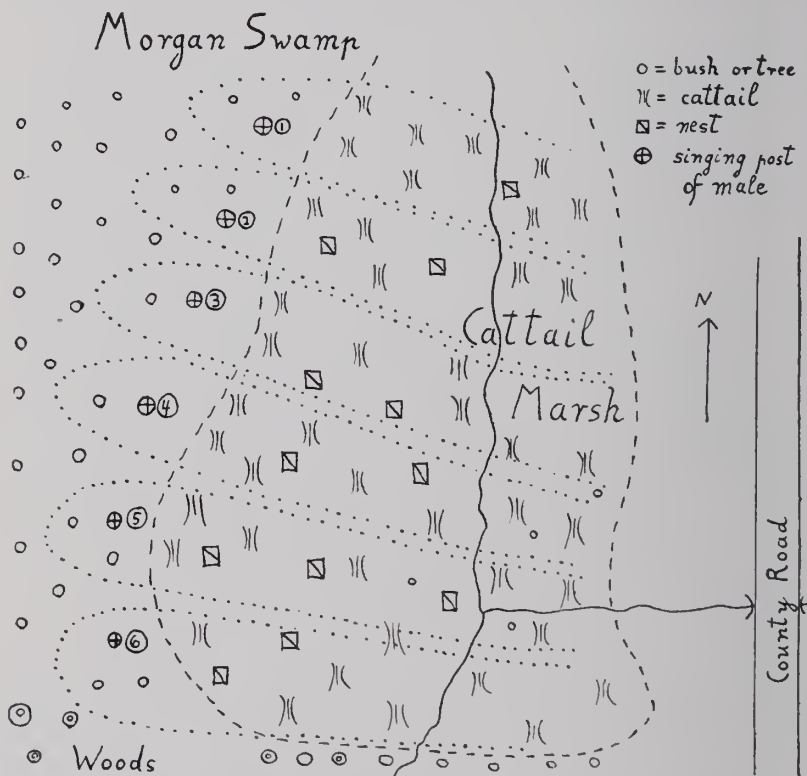 Morgan Swamp
o = bush or tree
= cattail
= nest
singing post
of male
①
②
③
④
⑤
⑥
N
Cattail
Marsh
County Road
Woods